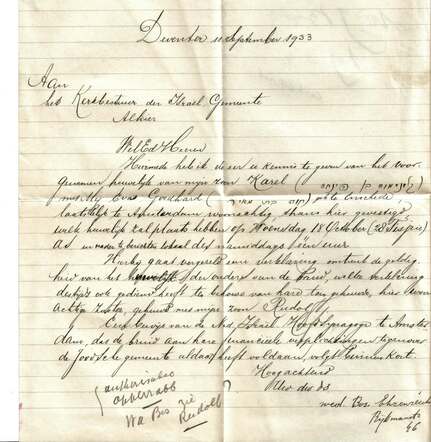 Deventer 11 September 1933
Aan
het Kerkbestuur der Israel. Gemeente
Alhier
WelEd Heeren
Hiermede heb ik de eer u kennis te geven van het voor-
genomen huwelijk van mijn zoon Karel (
met Mej. Eva Goudhard
laatstelijk te Amsterdam woonachtig, thans hier gevestigd
welk huwelijk zal plaats hebben op Woensdag 18 October (28 Tisjri)
As. in des namiddags één uur.
Hierbij gaat ongeveer een verklaring omtrent de geldig-
heid van het huwelijk der ouders van de bruid, welke verklaring
destijds ook gediend heeft ten behoeve van hare hier woon-
achtige Zuster, gehuwd met mijn zoon Rudolf.
Een bewijs van de Ned. Israel. Hoofdsynagoge te Amster
dam, dat de bruid aan hare financieele verplichtingen tegenover
de Joodsche gemeente aldaar heeft voldaan, volgt binnen kort
Hoogachtend
Uw dw
wed. Bos Ehrenreich
Rijkmanstr
46
authorisatie
opperrabb
Wa Bos zie
Rudolf